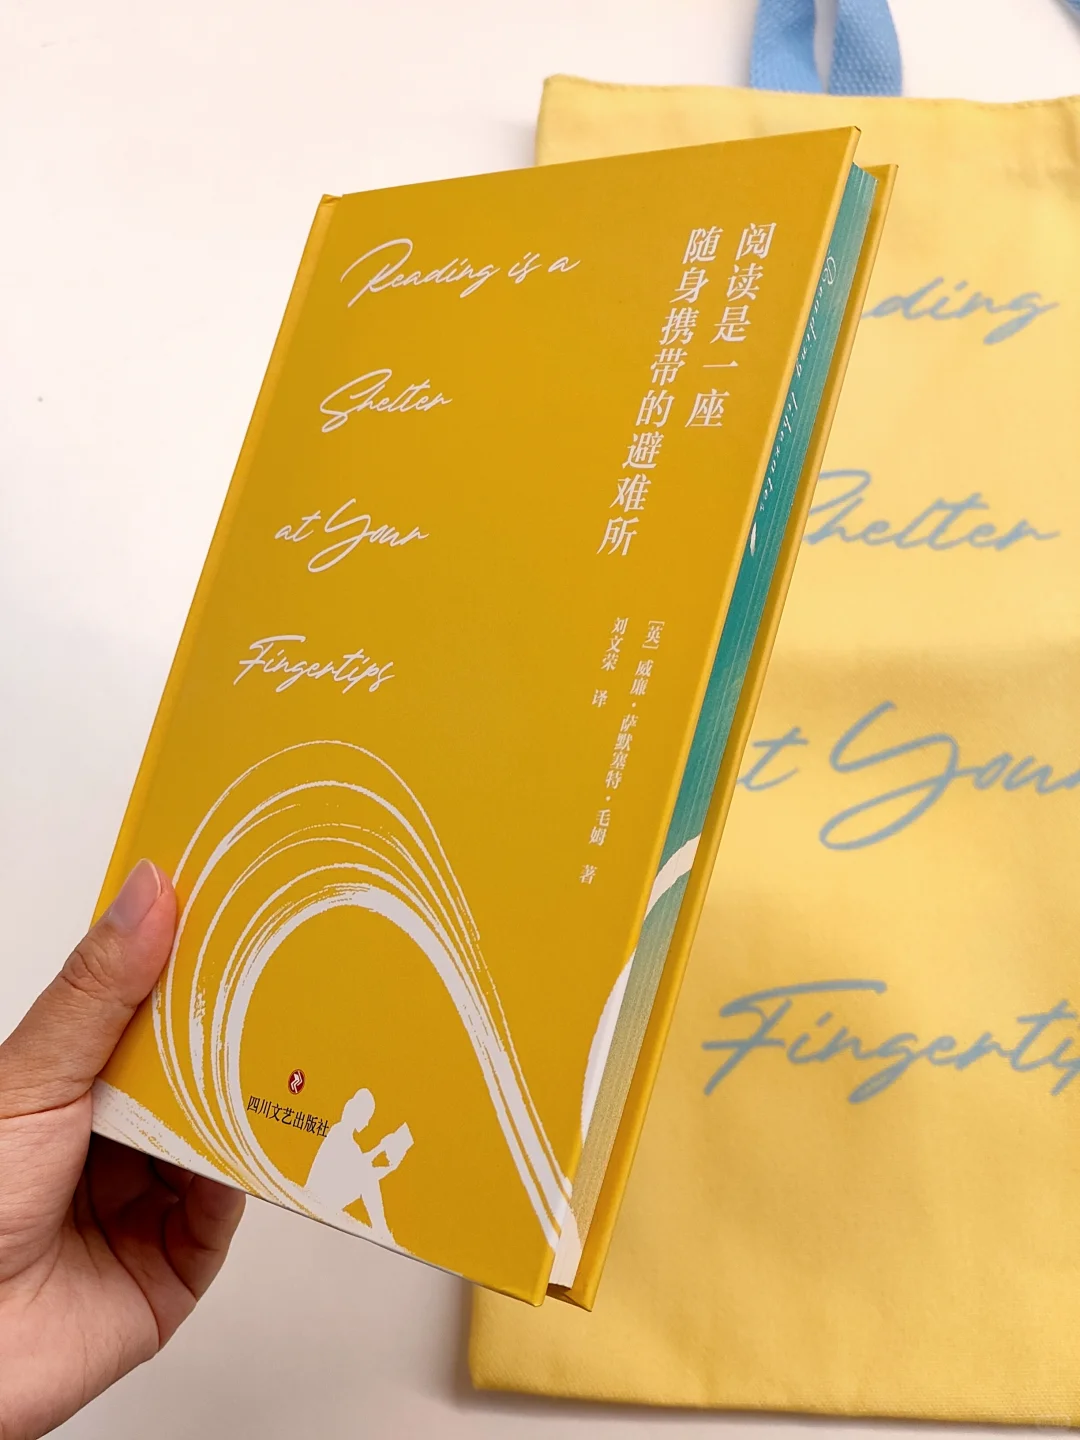 Reading is a
Shelter
at Your
Fingertips
阅读是一座
随身携带的避难所
[英] 威廉·萨默塞特·毛姆 著
刘文荣 译
四川文艺出版社
Reading liberates
ding
Shelter
t Your
Fingerti